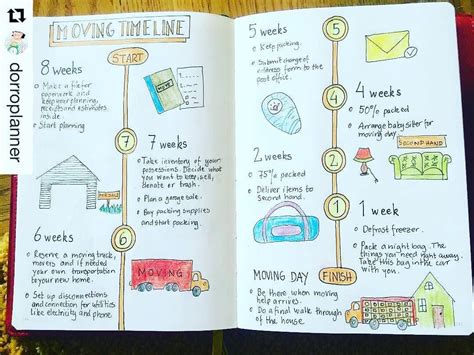 dorroplanner
MOVING TIMELINE
START
8 weeks
• Make a file for
paperwork and
keep your planning,
receipts and estimates
inside.
• Start planning
7
7 weeks
• Take inventory of your
possessions. Decide what
you want to keep, sell,
donate or trash.
• Plan a garage sale.
• Buy packing supplies
and start packing.
6 weeks
• Reserve a moving truck,
movers and if needed
your own transportation
to your new home.
• Set up disconnections
and connection for utilities
like electricity and phone.
6
MOVING
5 weeks
• Keep packing.
• Submit change of
address form to the
post office.
5
4
4 weeks
• 50% packed
• Arrange babysitter for
moving day.
SECOND HAND
2 weeks
• 75% packed
• Deliver items to
second hand.
2
1
1 week
• Defrost freezer.
• Pack a night bag. The
things you need right away.
Take this bag in the car
with you.
MOVING DAY
FINISH
• Be there when moving
help arrives.
• Do a final walk through
of the house.